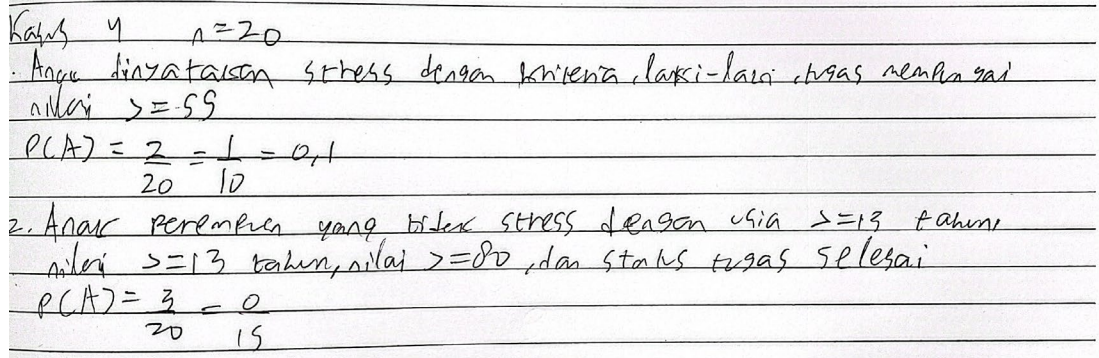 Kasus 4 n = 20
. Anak dinyatakan stress dengan kriteria, laki-laki, tugas mempunyai
nilai >= 55
P(A) = 2/20 = 1/10 = 0,1
2. Anak perempuan yang tidak stress dengan usia >= 13 tahun,
nilai >= 13 tahun, nilai >= 80, dan status tugas selesai
P(A) = 3/20 = 0/15